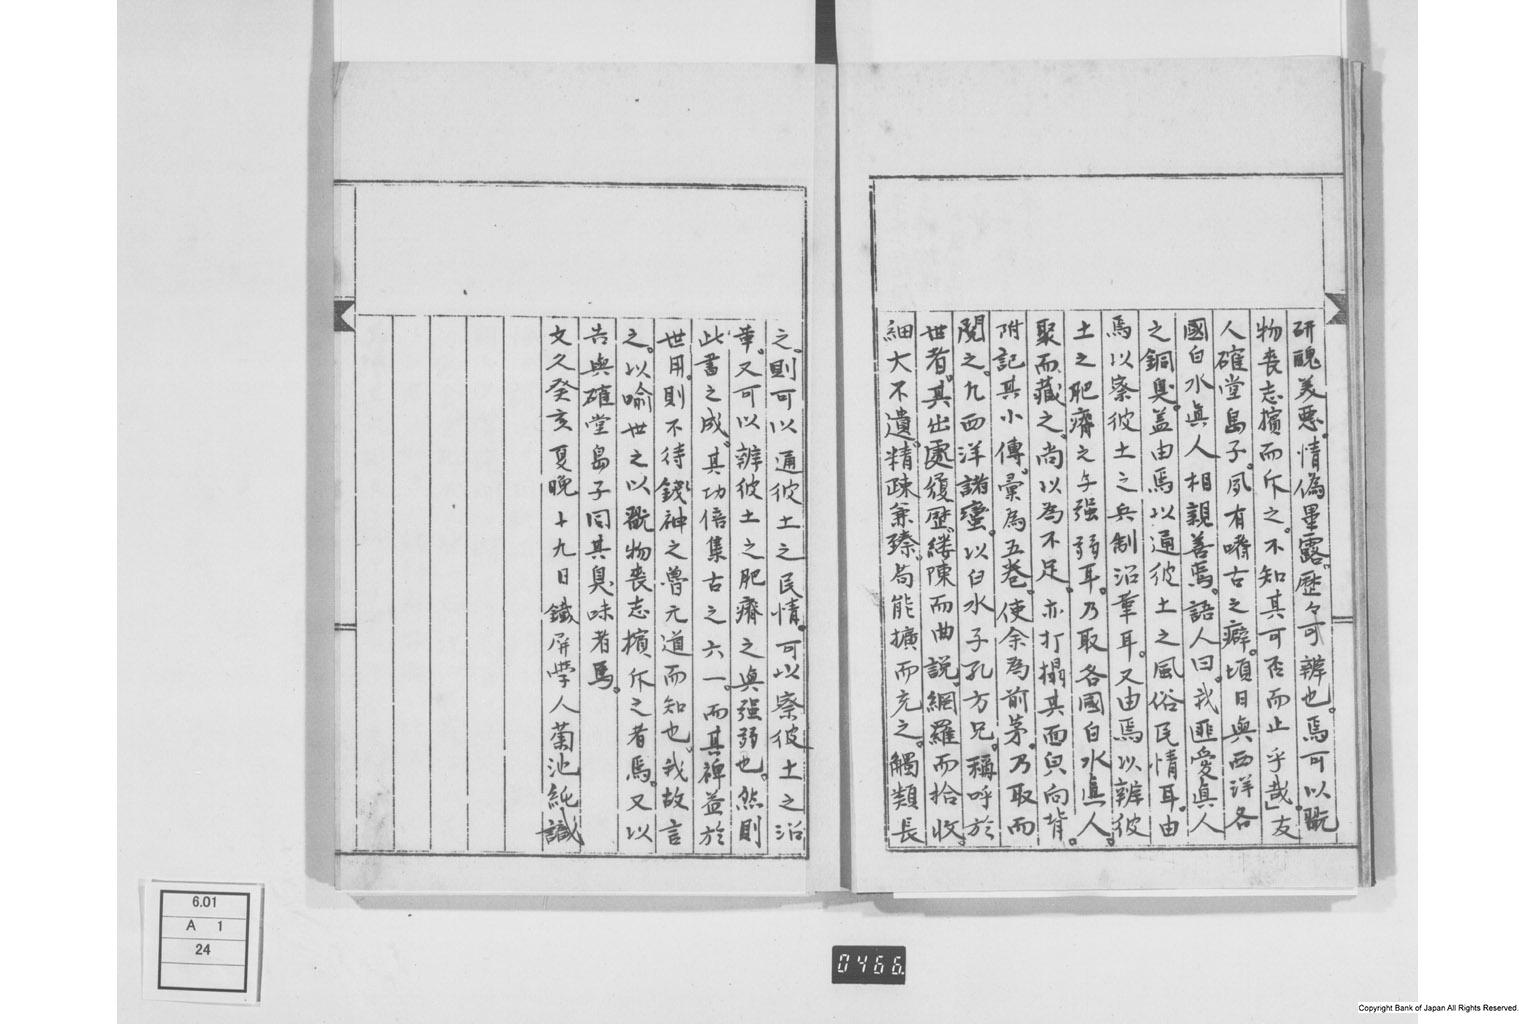 研醜美惡。情偽畢露。歷々可辨也。焉可以翫
物喪志擯而斥之。不知其可否而止乎哉」友
人確堂島子。夙有嗜古之癖。頃日與西洋各
國白水眞人相親善焉。語人曰。我匪愛眞人
之銅臭。蓋由焉以通彼土之風俗民情耳。由
焉以察彼土之兵制沿革耳。又由焉以辨彼
土之肥瘠之与强弱耳。乃取各國白水眞人。
聚而藏之。尚以為不足。亦打搨其面與向背。
附記其小傳。彙為五卷。使余為前茅。乃取而
閱之。凡西洋諸蠻。以白水子孔方兄。稱呼於
世者。其出處履歷。縷陳而曲說。網羅而拾收。
細大不遺。精疎兼臻。苟能擴而充之。觸類長
之。則可以通彼土之民情。可以察彼土之沿
革。又可以辨彼土之肥瘠之與强弱也。然則
此書之成。其功倍集古之六一。而其裨益於
世用。則不待錢神之魯元道而知也。我故言
之。以喻世之以翫物喪志擯斥之者焉。又以
告與確堂島子同其臭味者焉。
文久癸亥夏晚十九日 鐵屏學人菊池純識
6.01
A 1
24
0466.
Copyright Bank of Japan All Rights Reserved.